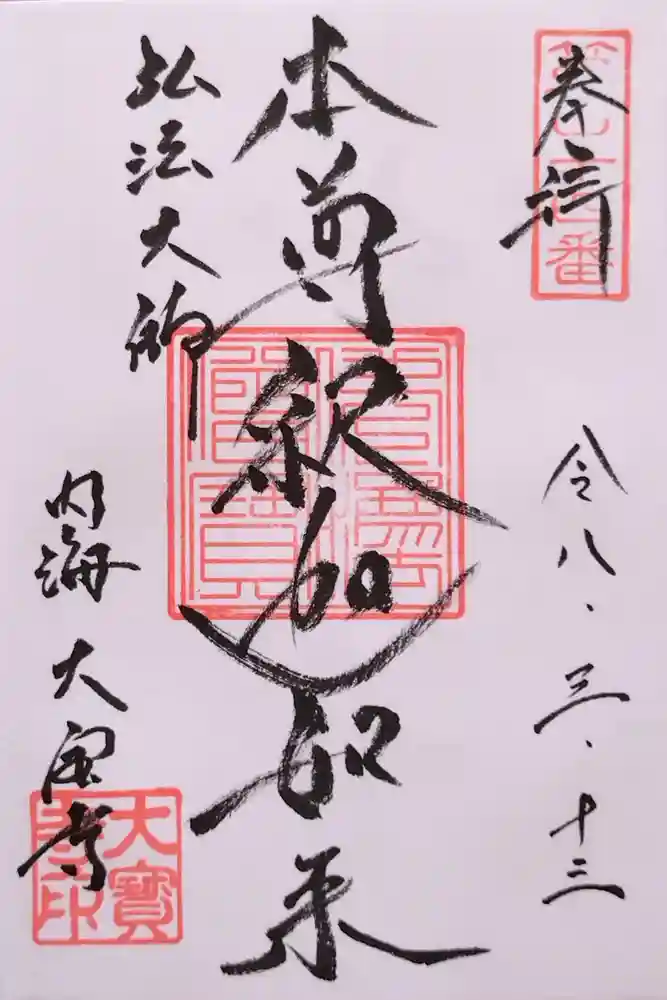 奉拝
令八・三・十三
本尊釈迦如来
弘法大師
内海 大宝寺
大寶
寺印